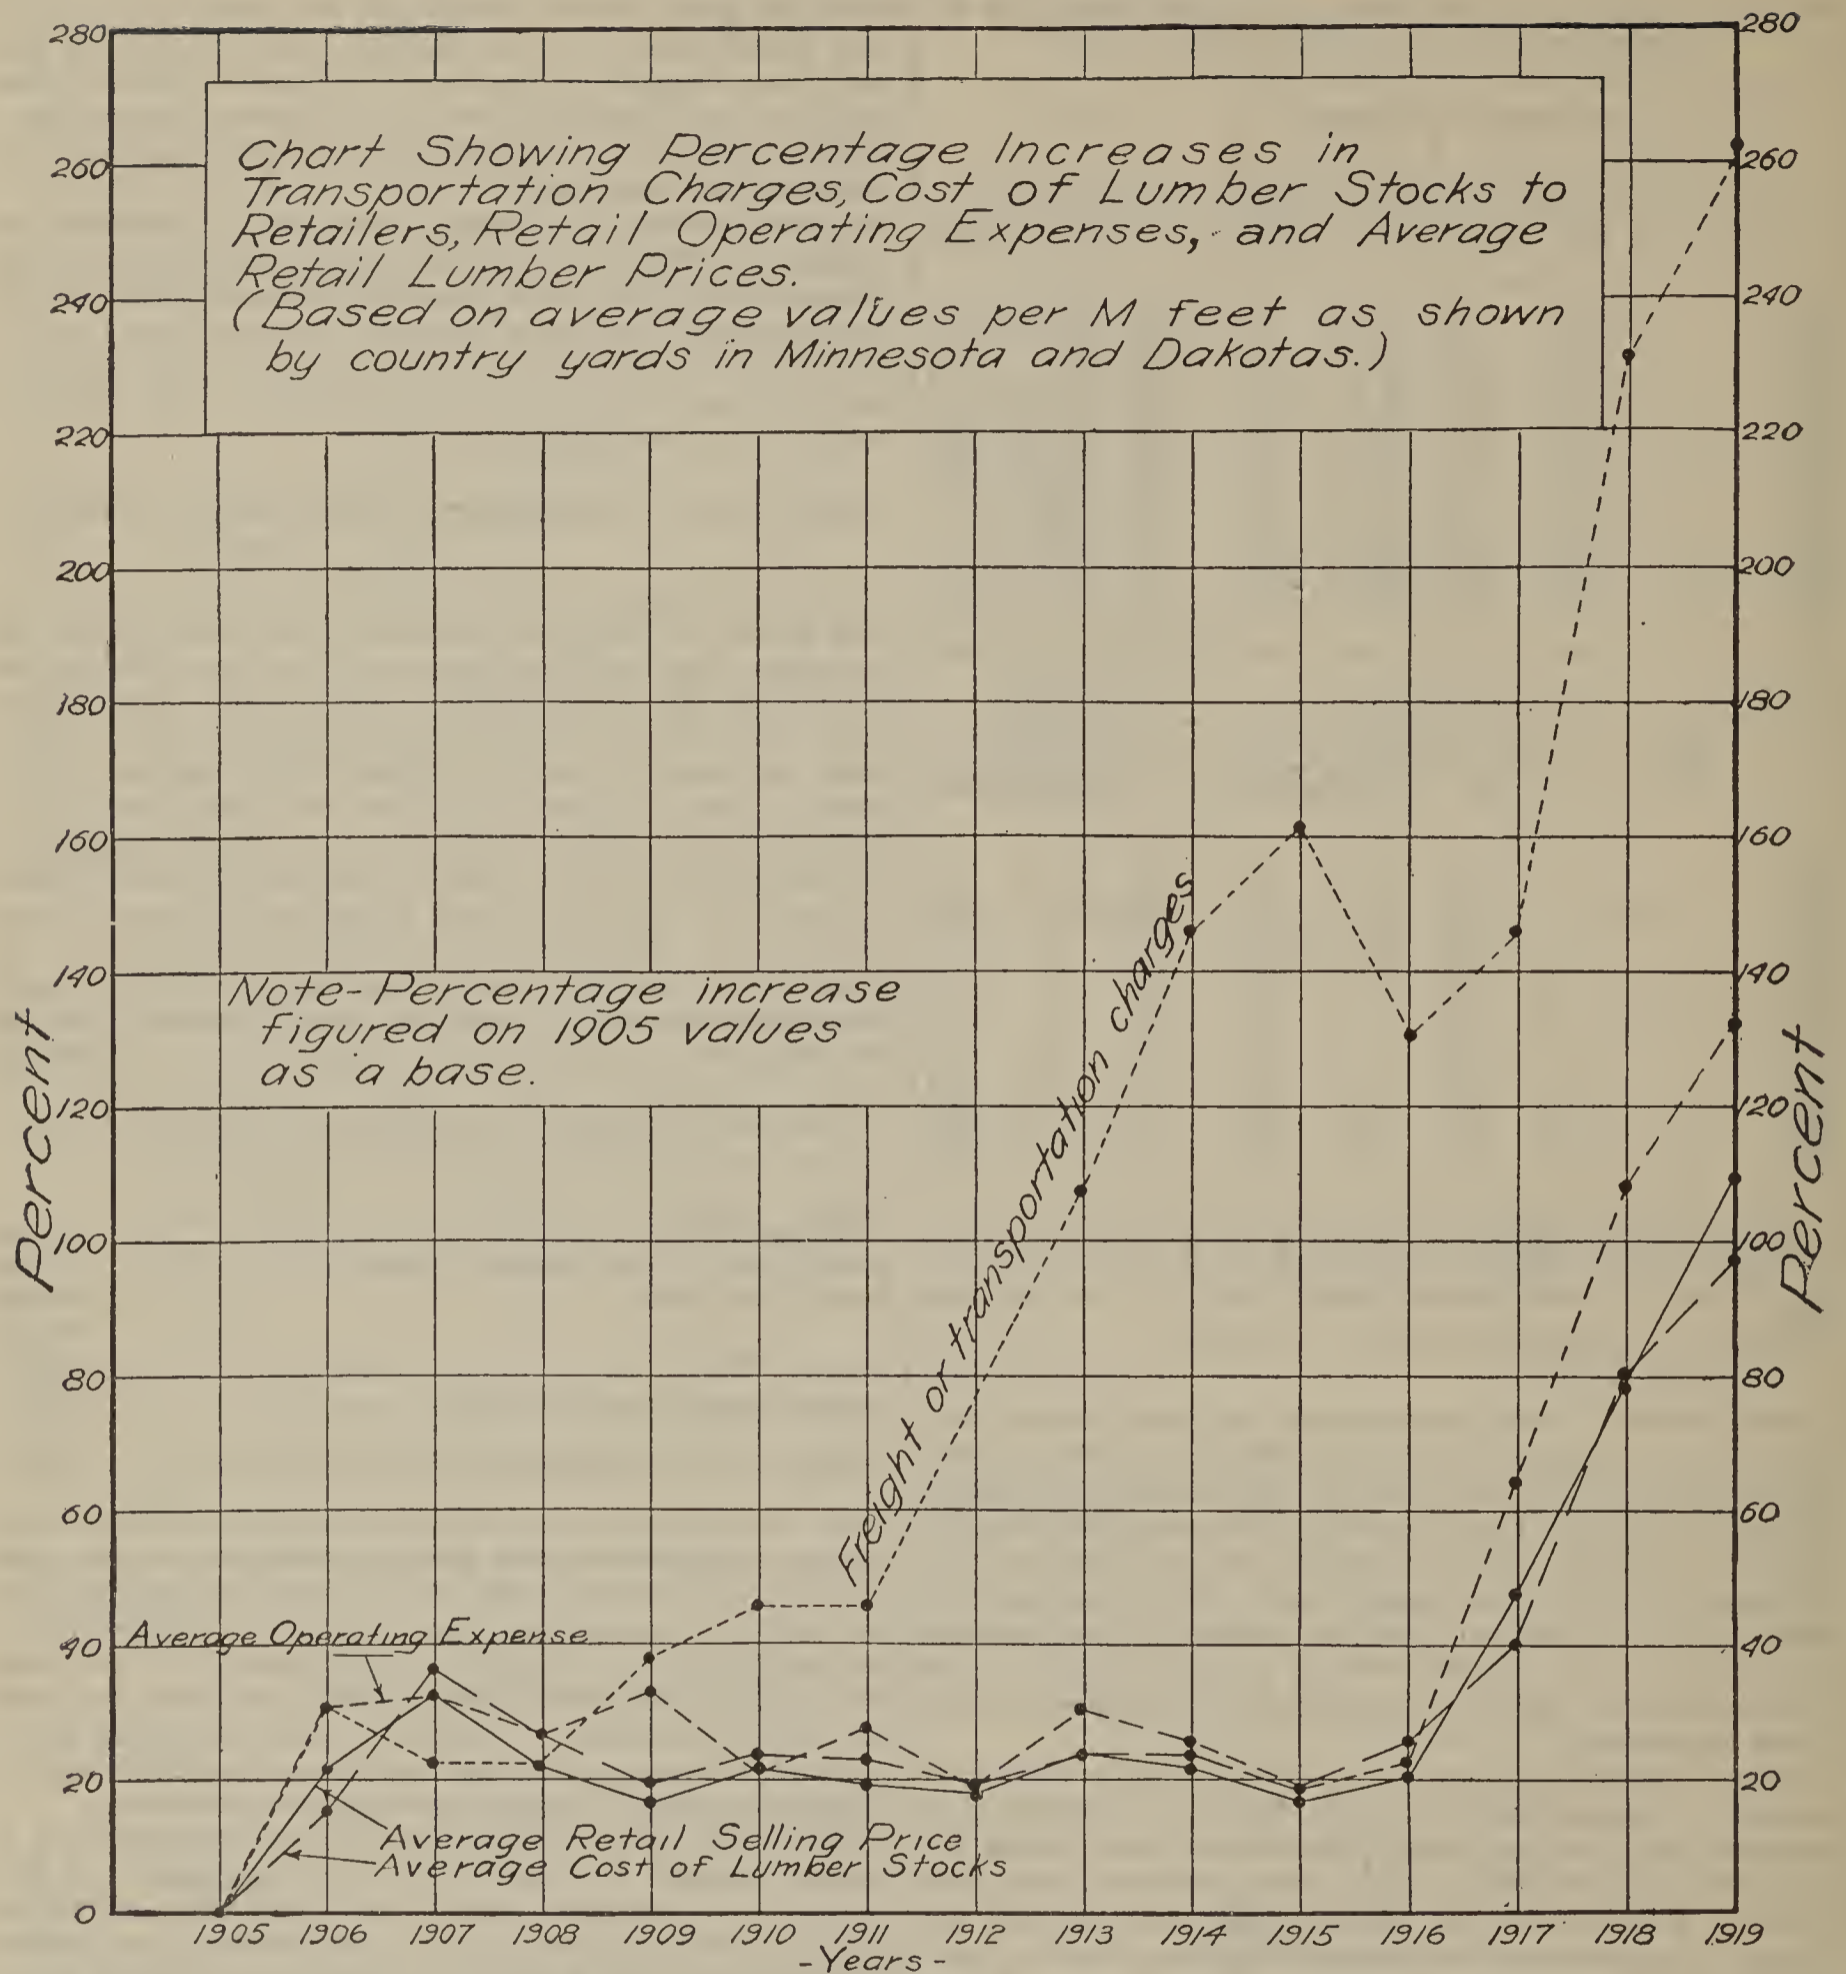 Chart Showing Percentage Increases in
Transportation Charges, Cost of Lumber Stocks to
Retailers, Retail Operating Expenses, and Average
Retail Lumber Prices.
(Based on average values per M feet as shown
by country yards in Minnesota and Dakotas.)
280
260
240
220
200
180
160
140
120
100
80
60
40
20
0
Percent
Note-Percentage increase
figured on 1905 values
as a base.
Freight or transportation charges
Average Operating Expense
Average Retail Selling Price
Average Cost of Lumber Stocks
280
260
240
220
200
180
160
140
120
100
80
60
40
20
Percent
1905 1906 1907 1908 1909 1910 1911 1912 1913 1914 1915 1916 1917 1918 1919
-Years-